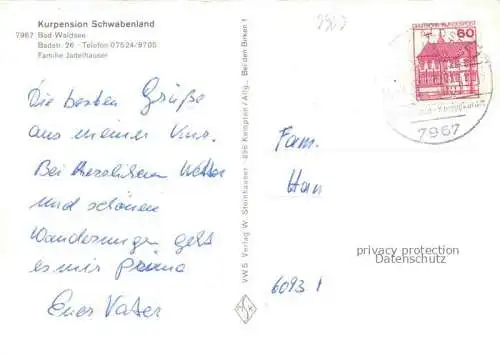 Kurpension Schwabenland
7967 Bad Waldsee
Badstr. 26 - Telefon 07524/9705
Familie Jadelhauser
Die besten Grüße
aus meiner Kur.
Bei herrlichem Wetter
und schönen
Wanderungen geht
es mir prima
Euer Vater
VWS Verlag W. Steinhauser · 896 Kempten / Allg., Bei den Birken 1
DEUTSCHE BUNDESPOST
60
7967
Fam.
Han
privacy protection
Datenschutz
6093 1